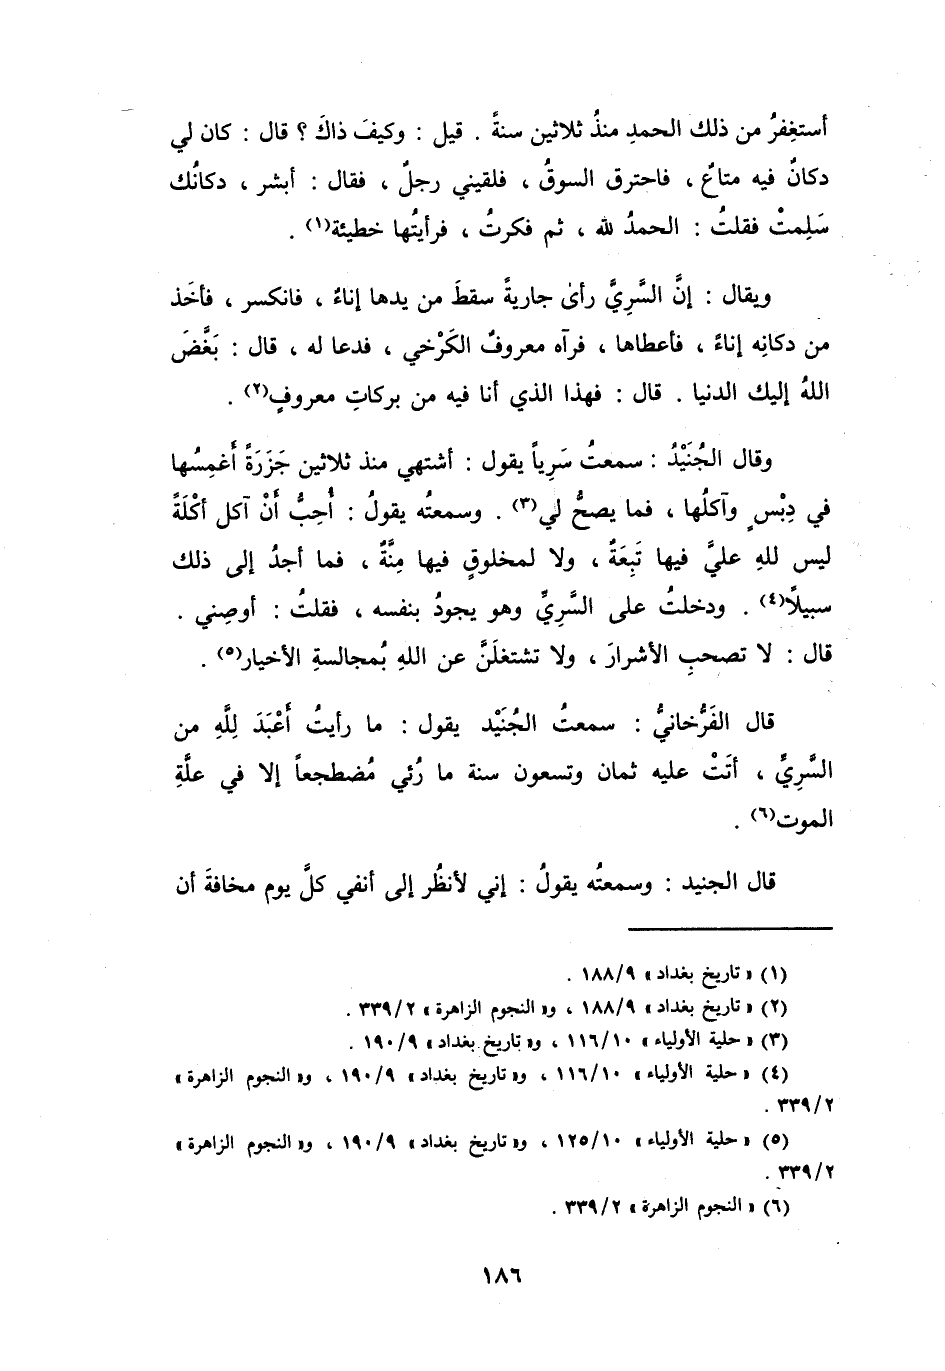 أستغِفرُ من ذلك الحمدِ منذُ ثلاثين سنةً . قيل : وكيفَ ذاكَ ؟ قال : كان لي
دكانٌ فيه متاعٌ ، فاحترق السوقُ ، فلقيني رجلٌ ، فقال : أبشر ، دكانُك
سَلِمتْ فقلتُ : الحمدُ لله ، ثم فكرتُ ، فرأيتُها خطيئة(١) .
ويقال : إنَّ السَّرِيَّ رأىٰ جاريةً سقطَ من يدها إناءٌ ، فانكسر ، فأخَذ
من دكانِه إناءً ، فأعطاها ، فرآه معروفٌ الكَرْخي ، فدعا له ، قال : بَغَّضَ
اللهُ إليك الدنيا . قال : فهذا الذي أنا فيه من بركاتِ معروفٍ(٢) .
وقال الجُنَيْدُ : سمعتُ سَرِياً يقول : أشتهي منذ ثلاثين جَزَرَةً أَغمِسُها
في دِبْسٍ وآكلُها ، فما يصحُّ لي(٣) . وسمعتُه يقولُ : أُحِبُّ أَنْ آكل أكْلَةً
ليس للهِ عليَّ فيها تَبِعَةٌ ، ولا لمخلوقٍ فيها مِنَّةٌ ، فما أجدُ إلى ذلك
سبيلًا(٤) . ودخلتُ على السَّرِيِّ وهو يجودُ بنفسه ، فقلتُ : أوصِني .
قال : لا تصحبِ الأشرارَ ، ولا تشتغلَنَّ عن اللهِ بُمجالسةِ الأخيار(٥) .
قال الفَرُّخانيُّ : سمعتُ الجُنَيْد يقول : ما رأيتُ أَعْبَدَ لِلَّهِ من
السَّرِيِّ ، أتَتْ عليه ثمان وتسعون سنة ما رُئي مُضطجعاً إلا في علَّةِ
الموت(٦) .
قال الجنيد : وسمعتُه يقولُ : إني لأنظُر إلى أنفي كلَّ يوم مخافةَ أن
(١) « تاريخ بغداد » ١٨٨/٩ .
(٢) « تاريخ بغداد » ١٨٨/٩ ، و« النجوم الزاهرة » ٣٣٩/٢ .
(٣) « حلية الأولياء » ١١٦/١٠ ، و« تاريخ بغداد » ١٩٠/٩ .
(٤) « حلية الأولياء » ١١٦/١٠ ، و« تاريخ بغداد » ١٩٠/٩ ، و« النجوم الزاهرة »
٣٣٩/٢ .
(٥) « حلية الأولياء » ١٢٥/١٠ ، و« تاريخ بغداد » ١٩٠/٩ ، و« النجوم الزاهرة »
٣٣٩/٢ .
(٦) « النجوم الزاهرة » ٣٣٩/٢ .
١٨٦